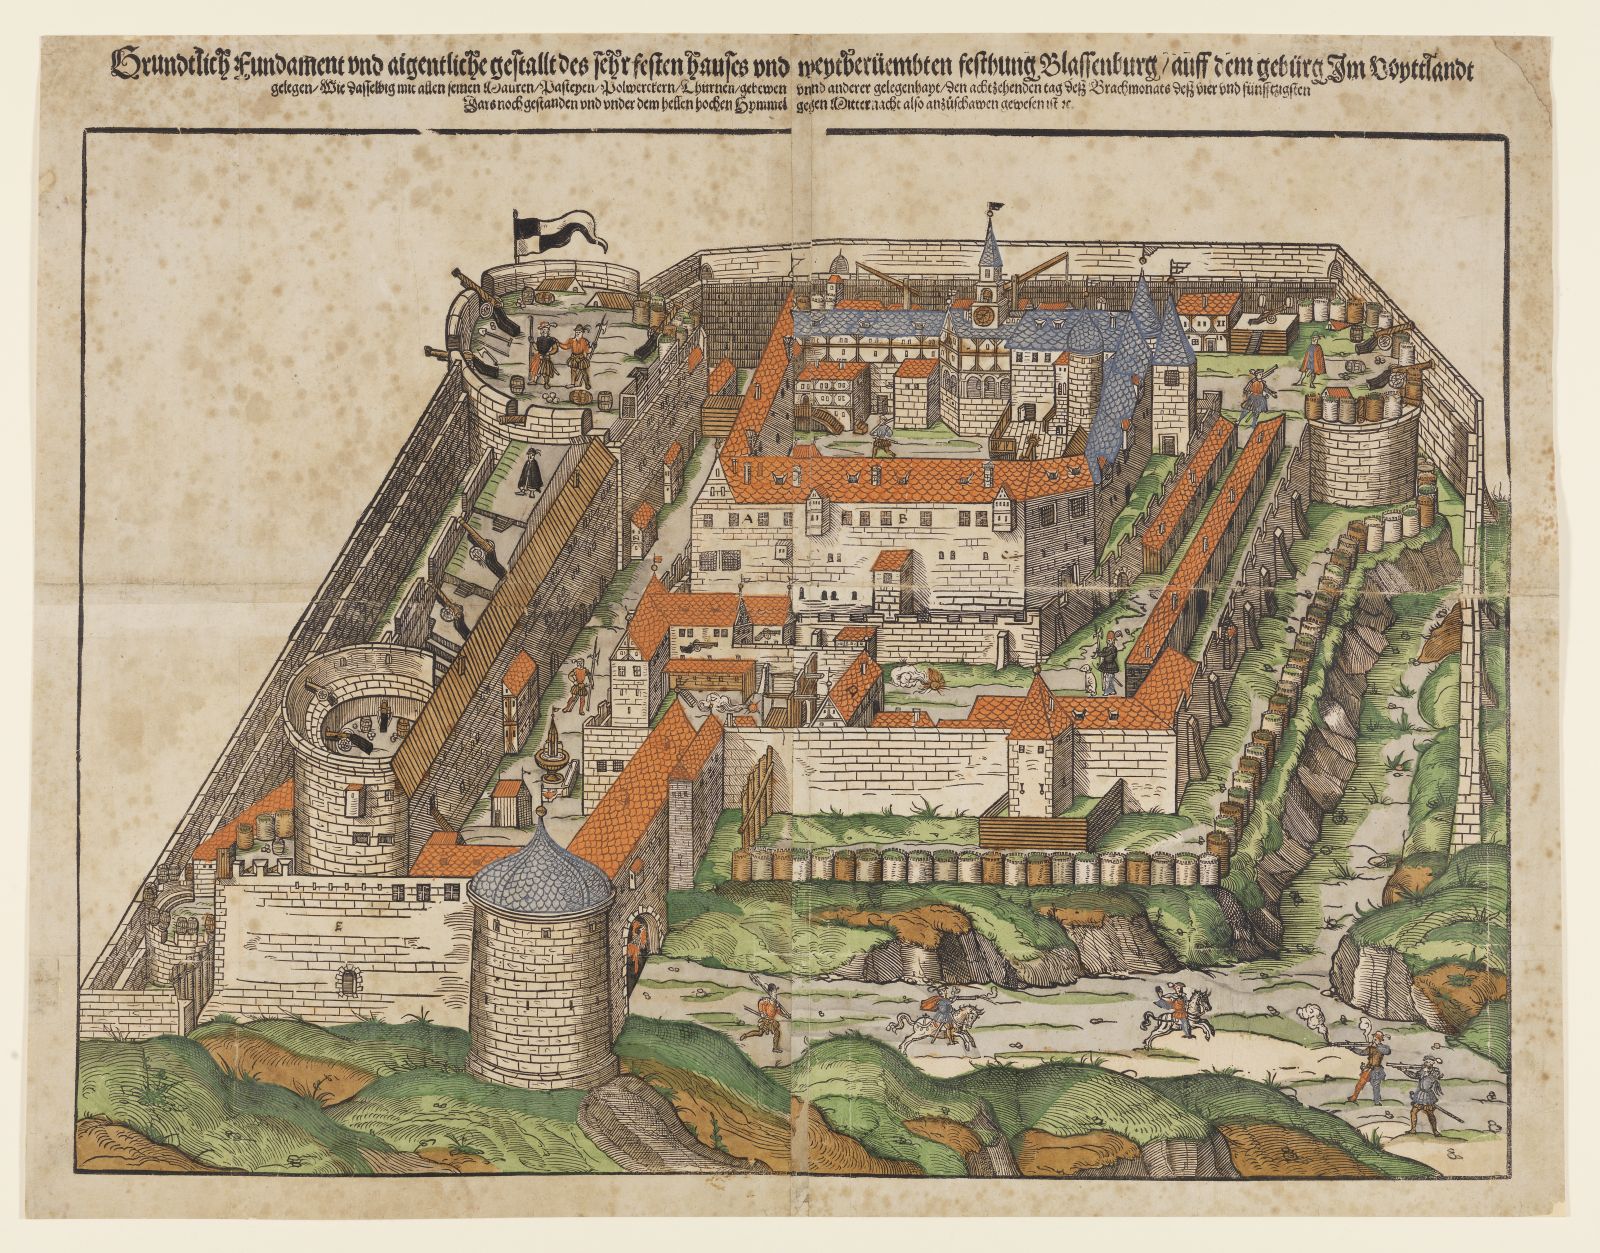 Grundtlich Fundament vnd aigentliche gestallt des sehr festen hauses vnd weytberüembten festhung Blassenburg / auff dem gebürg Jm Voyttlandt
gelegen / Wie dasselbig mit allen seinen Mauren / Pasteyen / Polwerckern / Thürnen / gebewen vnnd anderer gelegenhayt / den achtzehenden tag deß Brachmonats deß vier vnd fünfftzigsten
Jars noch gestanden vnd vnder dem hellen hochen Hymmel gegen Mitternacht also anzüschawen gewesen ist ꝛc.
A B C
D
E